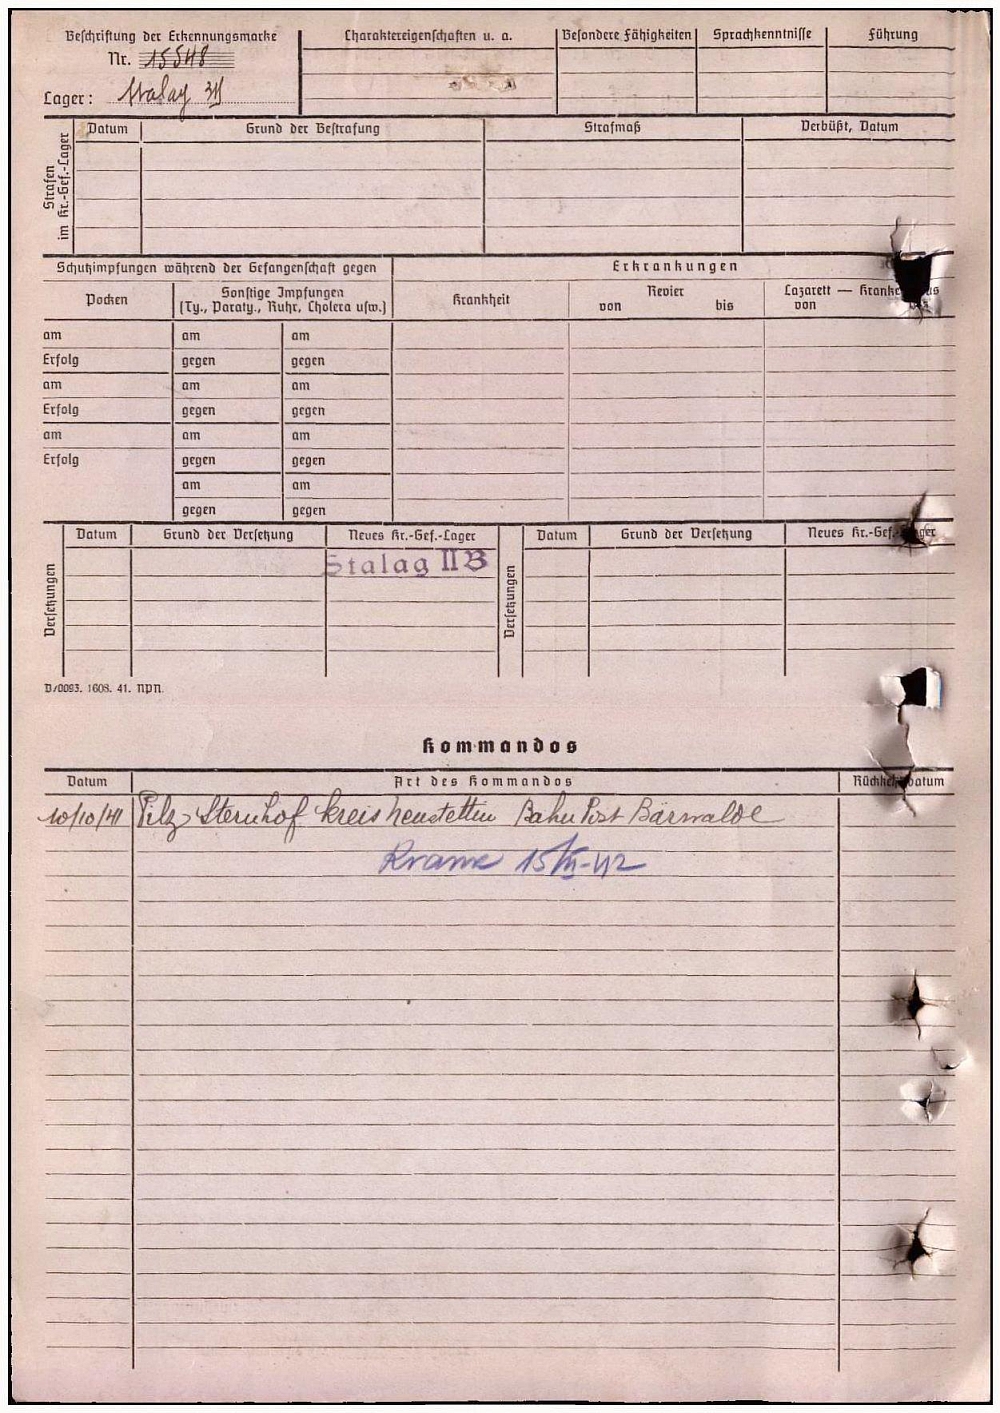 Beschriftung der Erkennungsmarke
Nr. 15548
Lager: Stalag
Charaktereigenschaften u. a.
Besondere Fähigkeiten
Sprachkenntnisse
Führung
Strafen im Kr.-Gef.-Lager
Datum
Grund der Bestrafung
Strafmaß
Verbüßt, Datum
Schutzimpfungen während der Gefangenschaft gegen
Erkrankungen
Pocken
Sonstige Impfungen
(Ty., Paraty., Ruhr, Cholera usw.)
Krankheit
Revier
von bis
Lazarett —
von
am am am
Erfolg gegen gegen
am am am
Erfolg gegen gegen
am am am
Erfolg gegen gegen
am am
gegen gegen
Versetzungen
Datum
Grund der Versetzung
Neues Kr.-Gef.-Lager
Stalag II B
Versetzungen
Datum
Grund der Versetzung
Neues Kr.-Gef.-Lager
D/0093. 1608. 41. NPN.
Kommandos
Datum
Art des Kommandos
10/10/41 Pilz Sternhof Kreis Neustettin Bahn Post Bärwalde